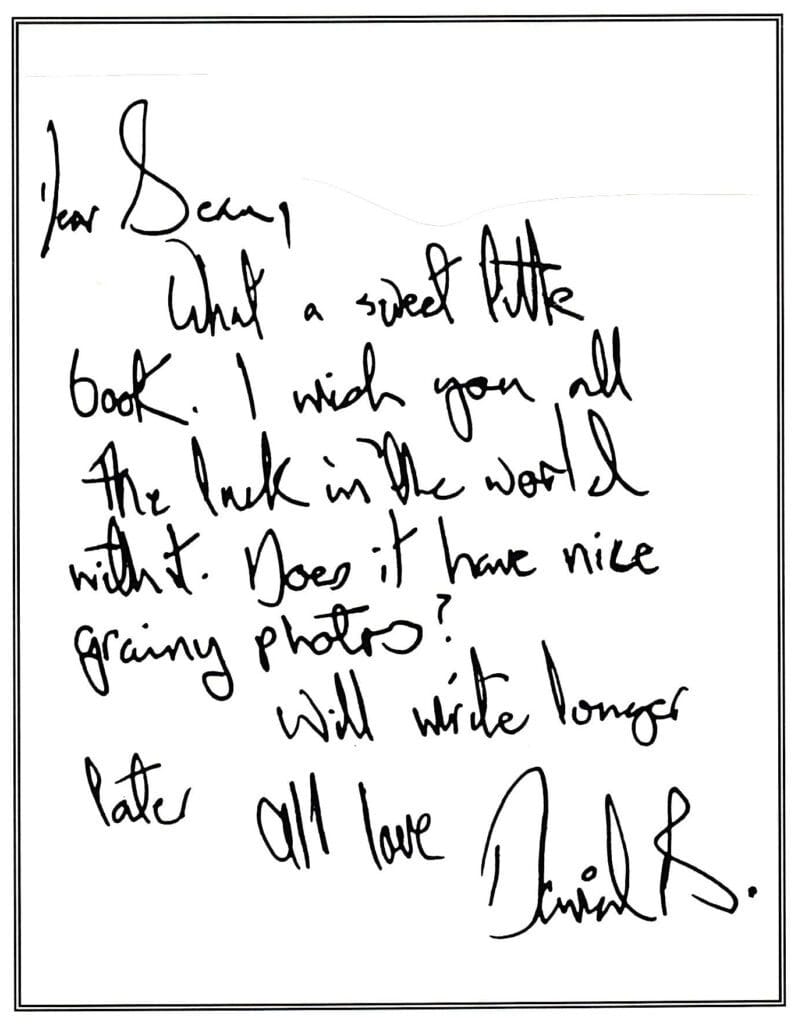 Dear Sean,
What a sweet little
book. I wish you all
the luck in the world
with it. Does it have nice
grainy photos?
Will write longer
later All love
B.